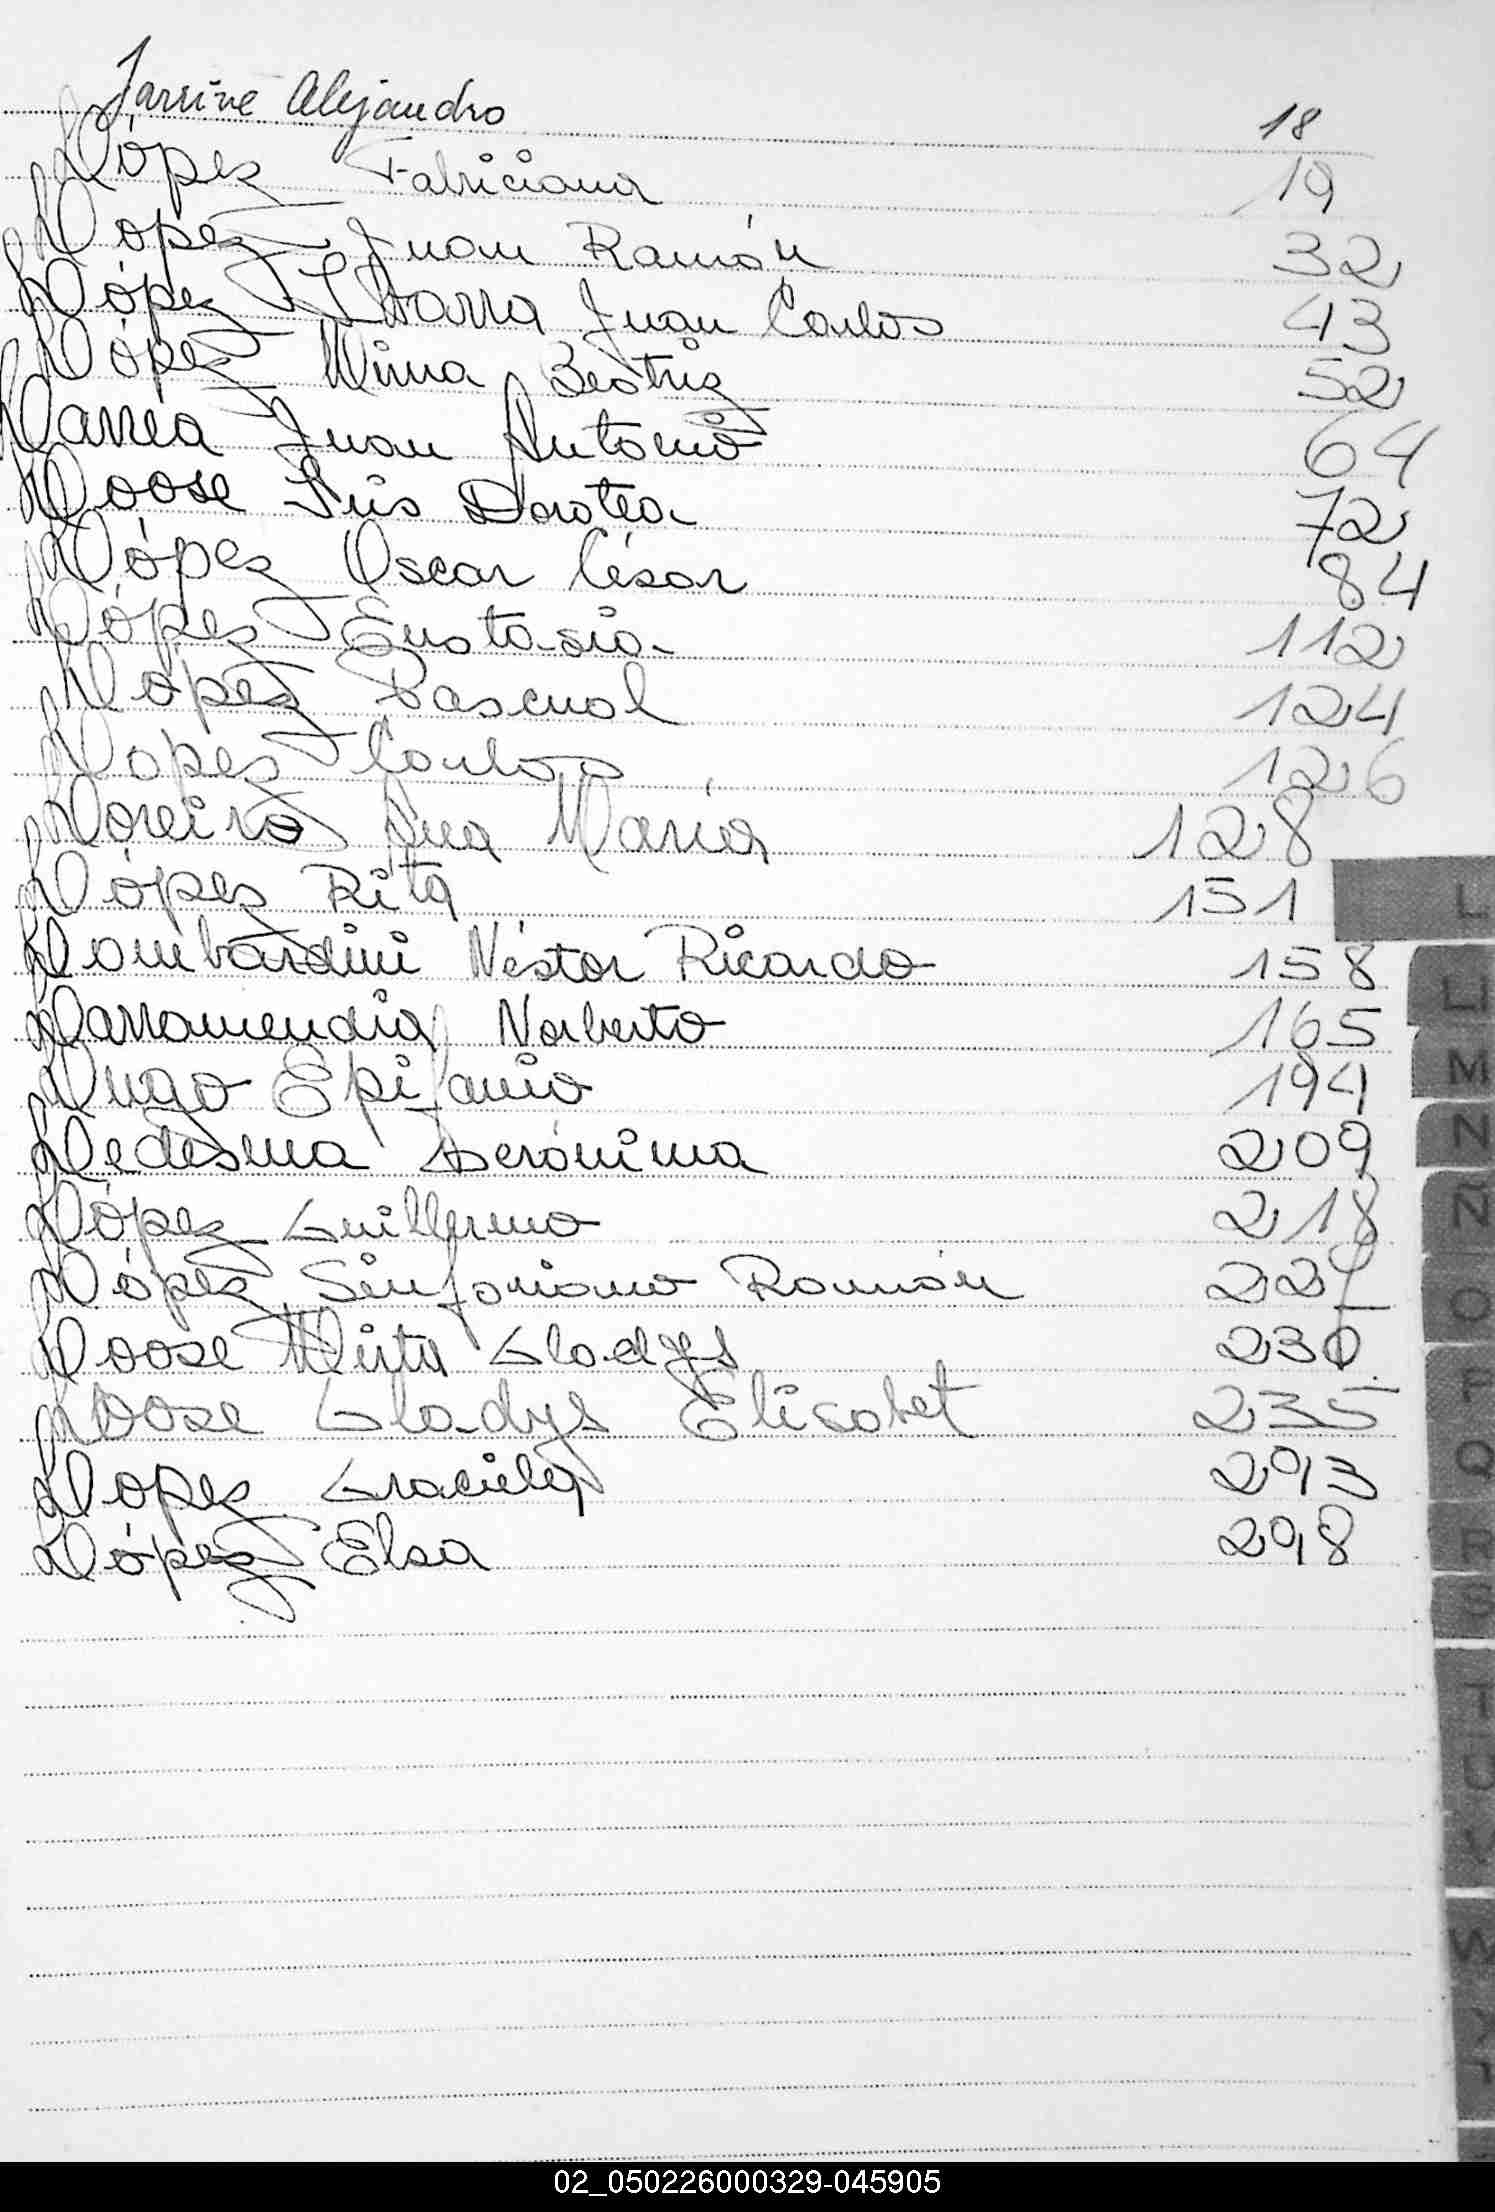 Larrive Alejandro 18
López Fabriciana 19
López Juan Ramón 32
López Ibarra Juan Carlos 43
López Mirna Beatriz 52
Larrea Juan Antonio 64
Loose Luis Dorotea 72
López Oscar César 84
López Eustasia 112
López Pascual 124
Lopez Carlos 126
Loreiro Ana María 128
López Rita 151
L
Lombardini Néstor Ricardo 158
LI
Larramendia Norberto 165
Lugo Epifanio 194
M
Ledesma Gerónima 209
N
López Guillermo 218
Ñ
López Sinforiano Román 227
O
Loose Mirta Gladys 230
Loose Gladys Elisabet 235
P
Lopez Graciela 293
Q
López Elsa 298
R
S
T
U
V
W
Y
02_050226000329-045905